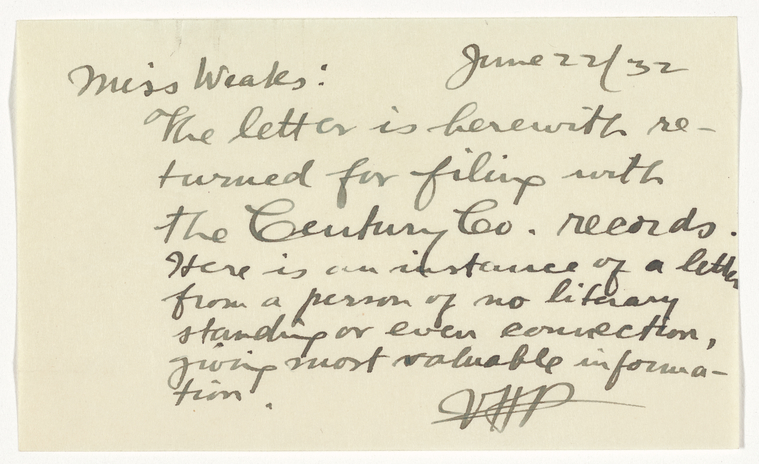 June 22/32
Miss Weaks:
The letter is herewith re-
turned for filing with
the Century Co. records.
Here is an instance of a letter
from a person of no literary
standing or even connection,
giving most valuable informa-
tion.
VHP